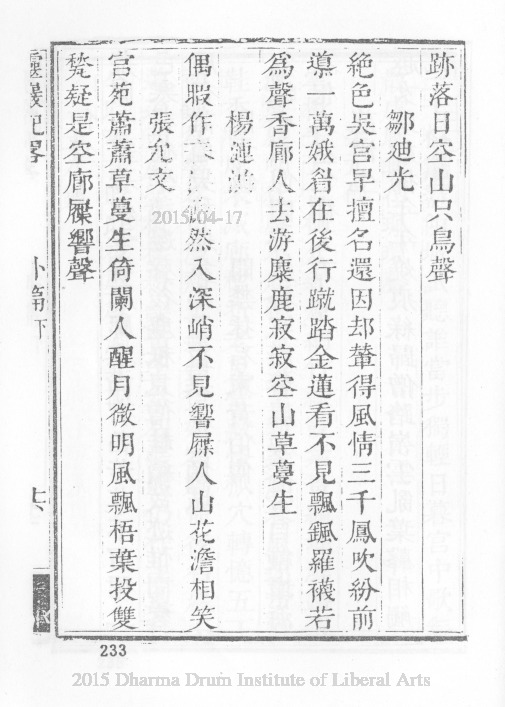 跡落日空山只鳥聲
鄒廸光
絶色吳宮早擅名還因却輦得風情三千鳳吹紛前
導一萬娥眉在後行蹴踏金蓮看不見飄颻羅襪若
爲聲香廊人去游麋鹿寂寂空山草蔓生
楊漣
偶暇作 然入深峭不見響屧人山花澹相笑
張允文
宮苑蕭蕭草蔓生倚闌人醒月微明風飄梧葉投雙
甃疑是空廊屧響聲
靈巖記畧
外篇下
2015/04-17
233
2015 Dharma Drum Institute of Liberal Arts